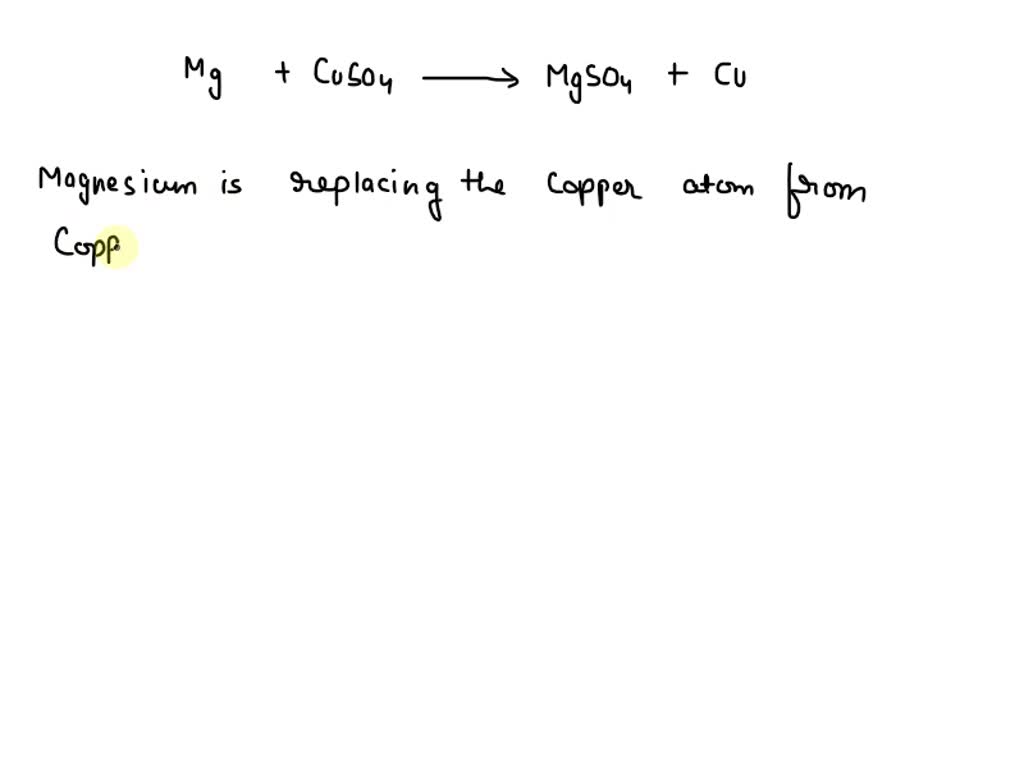 Mg + CuSO4 ⟶ MgSO4 + Cu
Magnesium is replacing the Copper atom from
Copp